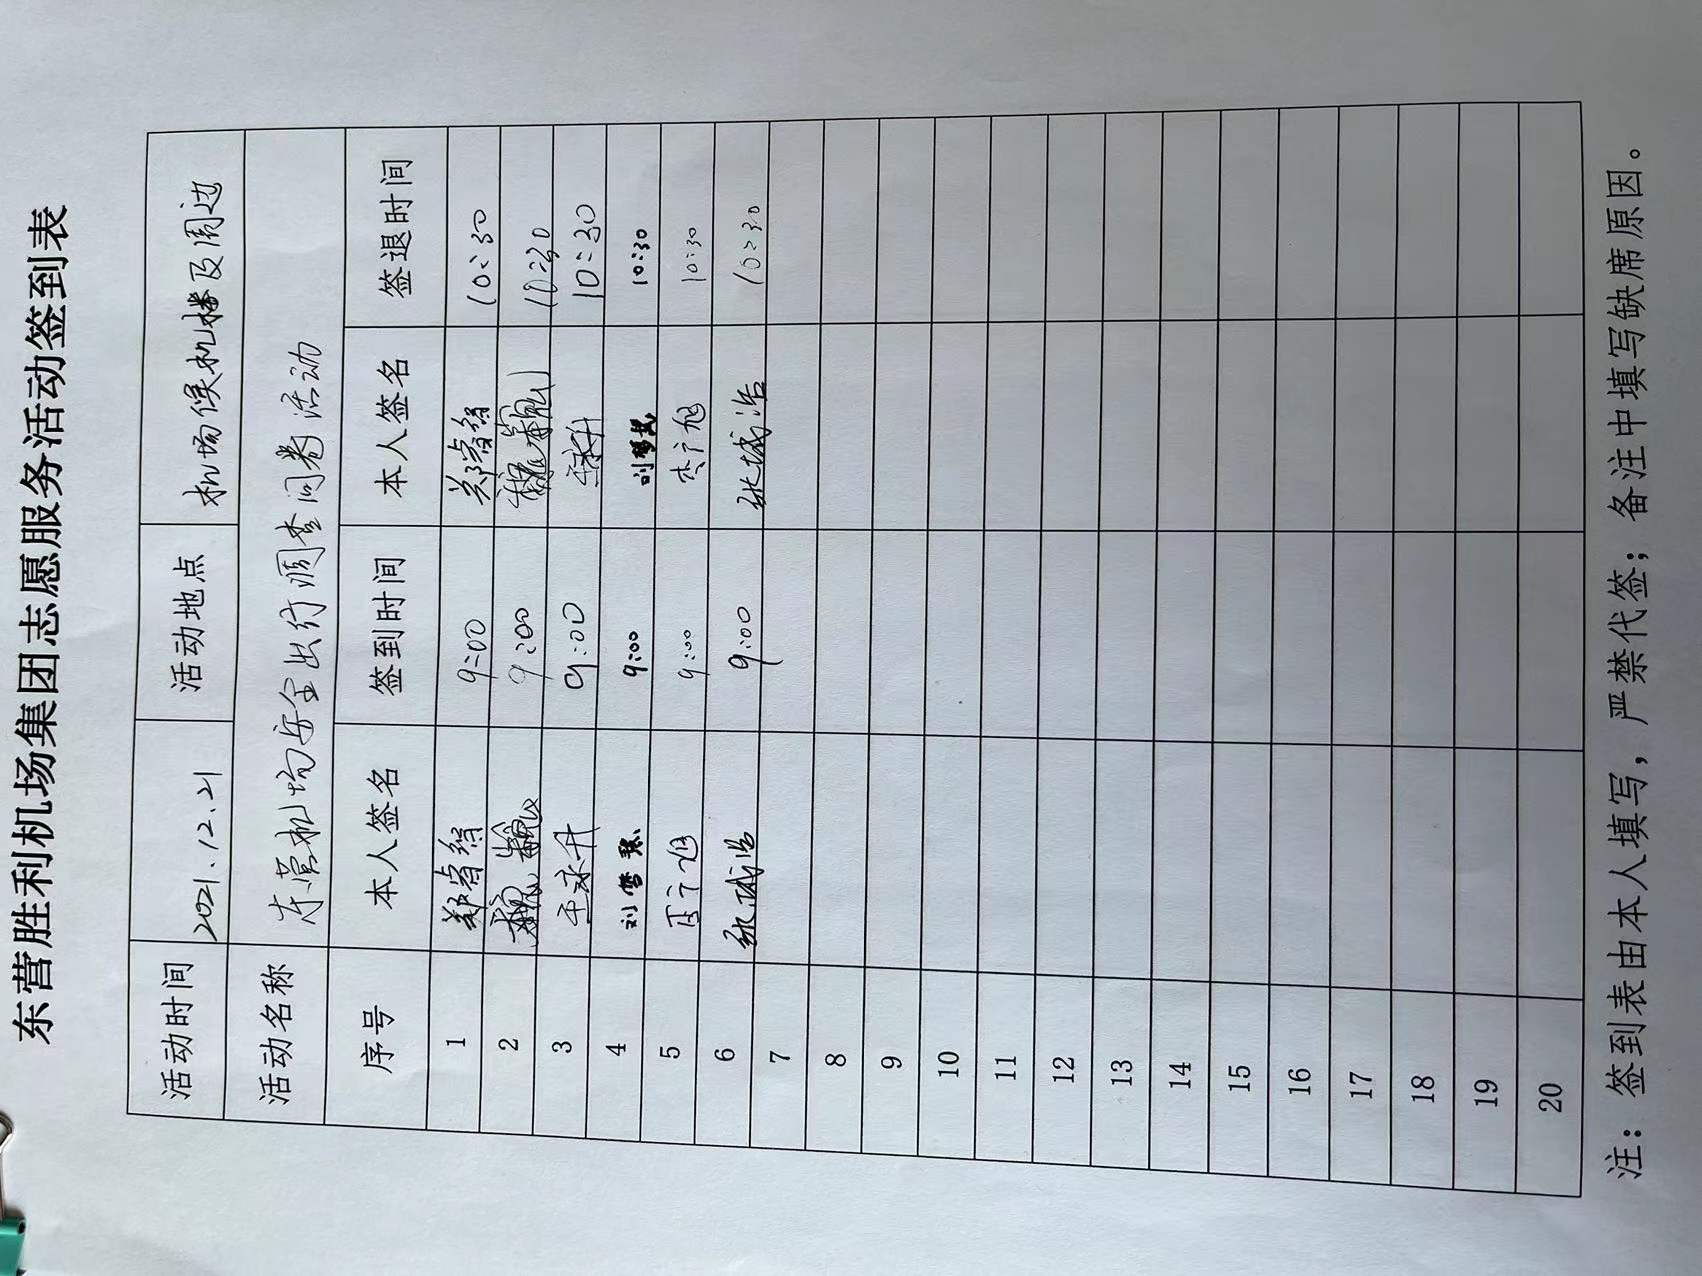 东营胜利机场集团志愿服务活动签到表
活动时间 2021.12.21 活动地点 机场候机楼及周边
活动名称 东营机场安全出行调查问卷活动
序号 本人签名 签到时间 本人签名 签退时间
1 郑睿绎 9:00 郑睿绎 10:30
2 9:00 10:30
3 9:00 10:30
4 9:00 10:30
5 9:00 10:30
6 张城浩 9:00 张城浩 10:30
7
8
9
10
11
12
13
14
15
16
17
18
19
20
注：签到表由本人填写，严禁代签；备注中填写缺席原因。